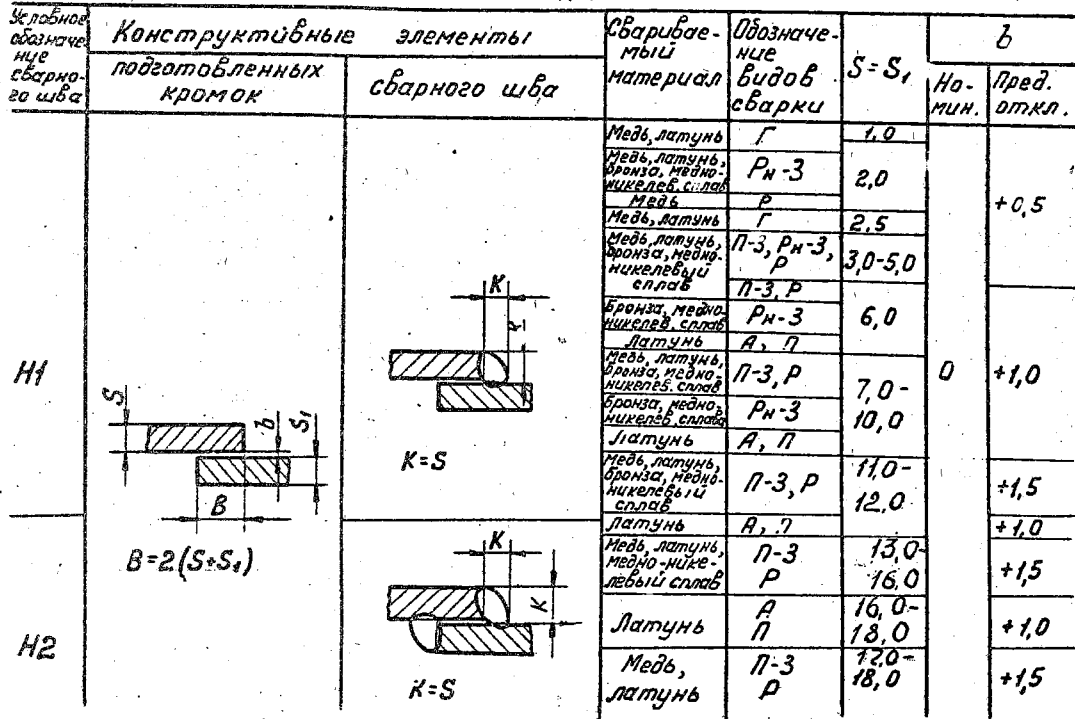 Условное обозначе- ние сварно- го шва
Конструктивные элементы
подготовленных кромок
сварного шва
Сваривае- мый материал
Обозначе- ние видов сварки
S = S₁
b
Но- мин.
Пред. откл.
Медь, латунь
Г
1,0
Медь, латунь, бронза, медно- никелев. сплав
Рн-3
2,0
+0,5
Медь
Р
Медь, латунь
Г
2,5
Медь, латунь, бронза, медно- никелевый сплав
П-3, Рн-3, Р
3,0-5,0
П-3, Р
6,0
Бронза, медно- никелев. сплав
Рн-3
Латунь
А, П
Медь, латунь, бронза, медно- никелев. сплав
П-3, Р
7,0- 10,0
0
+1,0
Бронза, медно- никелев. сплава
Рн-3
Латунь
А, П
Медь, латунь, бронза, медно- никелевый сплав
П-3, Р
11,0- 12,0
+1,5
Латунь
А, П
+1,0
Медь, латунь, медно-нике- левый сплав
П-3 Р
13,0- 16,0
+1,5
Латунь
А П
16,0- 18,0
+1,0
Медь, латунь
П-3 Р
17,0- 18,0
+1,5
Н1
S
b
S₁
B
B=2(S+S₁)
K
K
K=S
Н2
K
K
K=S